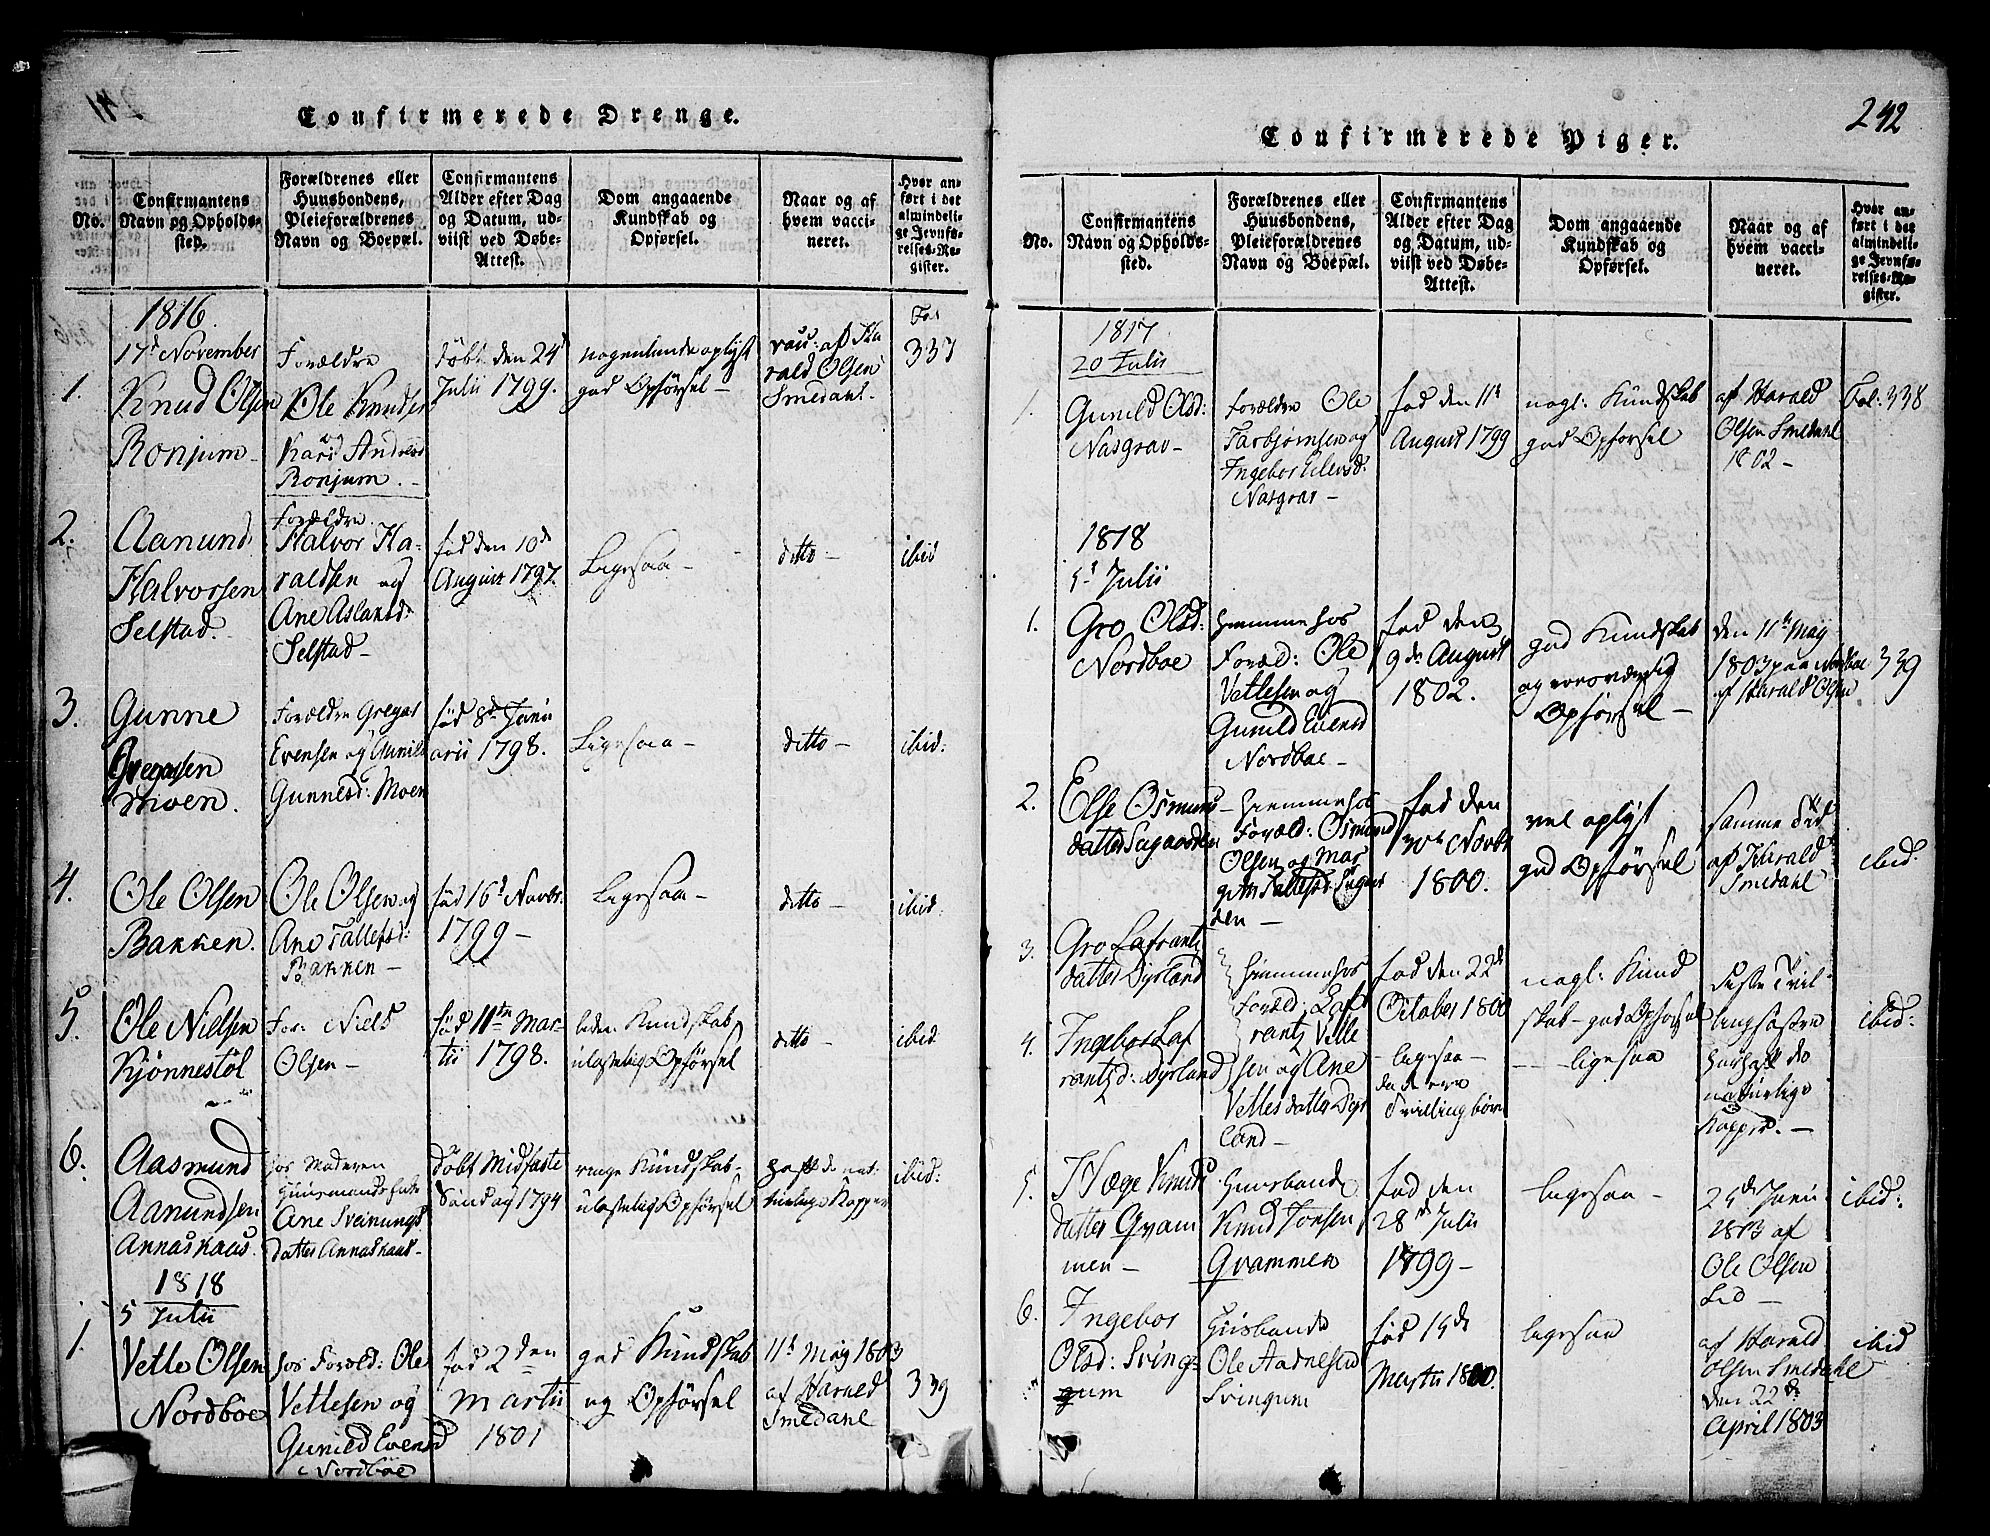 Confirmerede Drenge.
No.
Confirmantens
Navn og Opholds-
sted.
Forældrenes eller
Huusbondens,
Pleieforældrenes
Navn og Boepæl.
Confirmantens
Alder efter Dag
og Datum, ud-
viist ved Døbe-
Attest.
Dom angaaende
Kundskab og
Opførsel.
Naar og af
hvem vacci-
neret.
Hvor an-
ført i det
almindeli-
ge Jevnfø-
relses-Re-
gister.
1816.
17d November
1.
Knud Olsen
Ronjum
Forældre
Ole Knudsen
Kari Andersd
Ronjum.
Døbt den 24d
Julii 1799.
nogenlunde oplyst
god Opførsel
vacc: af Ha
rald Olsen
Smedahl.
Fol
337
2.
Aanund
Halvorsen
Selstad.
Forældre
Halvor Ha-
raldsen og
Ane Aslaksd:
Selstad
fød den 10d
August 1797.
Ligesaa
ditto
ibid
3.
Gunne
Gregasen
Moen.
Forældre Gregas
Evensen og Gunild
Gunnesd: Moen
fød 8de Janu
arii 1798.
Ligesaa
ditto
ibid:
4.
Ole Olsen
Bakken.
Ole Olsen og
Ane Tallefsd:
Bakken
fød 16d Novbr.
1799
Ligesaa
ditto
ibid:
5.
Ole Nielsen
Kjönnestöl
For: Niels
Olsen
fød 11te Mar-
tii 1798.
liden Kundskab
ulastelig Opførsel
ditto
ibid.
6.
Aasmund
Aanundsen
Annaskaas.
hos Moderen
Huusmands Enke
Ane Sveinungs
datter Annaskaas
Døbt Midfaste
Søndag 1794
ringe Kundskab
ulastelig Opførsel
haft de nat-
turlige Kopper
ibid:
1818
5 Julii
1.
Vetle Olsen
Nordböe
hos Foræld: Ole
Vetlesen og
Gunild Evensd
Nordböe
fød 2den
Martii
1801
god Kundskab
og Opførsel
11te May 1803
af Harald
Smedahl
339
Confirmerede Piger.
242
No.
Confirmantens
Navn og Opholds-
sted.
Forældrenes eller
Huusbondens,
Pleieforældrenes
Navn og Boepæl.
Confirmantens
Alder efter Dag
og Datum, ud-
viist ved Døbe-
Attest.
Dom angaaende
Kundskab og
Opførsel.
Naar og af
hvem vacci-
neret.
Hvor an-
ført i det
almindeli-
ge Jevnfø-
relses-Re-
gister.
1817
20 Julii
1.
Gunild Olsd:
Nasgrav
Forældre Ole
Tarbjørnsen og
Ingebor Eilevsd:
Nasgrav
fød den 11te
August 1799
nogl: Kundskab
god Opførsel
af Harald
Olsen Smedahl
1802
Fol: 338
1818
5t Julii
1.
Gro Olsd:
Nordboe
Hiemme hos
Foræld: Ole
Vetlesen og
Gunild Evensd
Nordboe
fød den
9de August
1802.
god Kundskab
og roesværdig
Opførsel
den 11te May
1803 paa Nordboe
af Harald Olsen
339
2.
Else Osmunds
datter
Hiemme hos
Foræld: Osmund
Olsen og Mar
gith Tallefsd:
den
fød den
30te Novbr
1800.
vel oplyst
god Opførsel
samme Tid
af Harald
Smedahl
ibid.
3.
Gro Lafrantz
datter Dyrland
Hiemme hos
Foræld: Laf
rantz Vetle
sen og Ane
Vetlesdatter Dyr
land
fød den 22de
October 1800
nogl: Kund
skab god Opførsel
disse Tvil-
lingsøstre
har haft de
naturlige
Kopper.
ibid:
4.
Ingebor Laf
rantzd: Dyrland
ligesaa
da de ere
Tvillingbørn
ligesaa
5.
Hæge Knuds
datter Qvam
men
Huusbonde
Knud Torsen
Qvammen
fød den
28de Julii
1799
ligesaa
25de Junii
1813 af
Ole Olsen
Lid
ibid:
6.
Ingebor
Olsd: Sving-
gum
Huusbonde
Ole Aadnesen
Svingum
fød 15de
Martii 1800.
ligesaa
af Harald
Olsen Smedahl
den 22de
April 1803
ibid